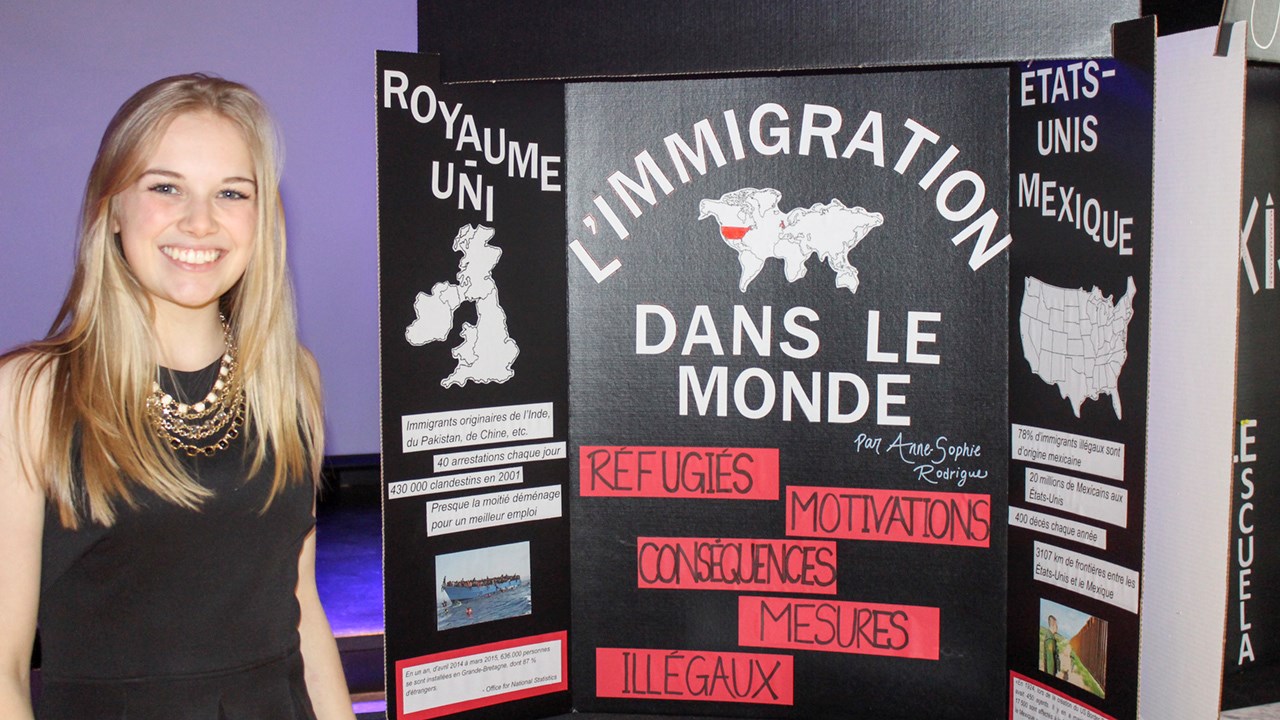 ROYAUME
-UNI
Immigrants originaires de l'Inde,
du Pakistan, de Chine, etc.
40 arrestations chaque jour
430 000 clandestins en 2001
Presque la moitié déménage
pour un meilleur emploi
En un an, d'avril 2014 à mars 2015, 636,000 personnes
se sont installées en Grande-Bretagne, dont 87 %
d'étrangers.
- Office for National Statistics
L'IMMIGRATION
DANS LE
MONDE
par Anne-Sophie
Rodrigue
RÉFUGIÉS
MOTIVATIONS
CONSÉQUENCES
MESURES
ILLÉGAUX
ÉTATS-
UNIS
MEXIQUE
78% d'immigrants illégaux sont
d'origine mexicaine
20 millions de Mexicains aux
États-Unis
400 décès chaque année
3107 km de frontières entre les
États-Unis et le Mexique
ESCUELA